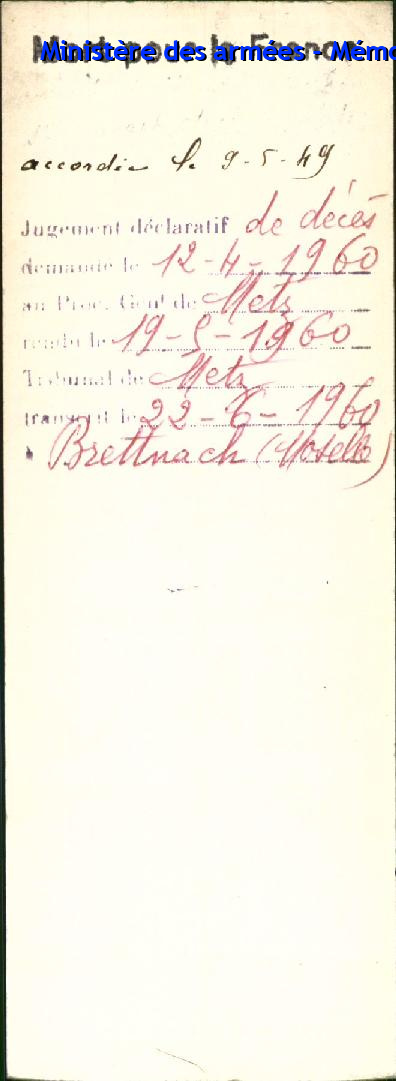 Mort pour la France
Ministère des armées - Mémo
accordée le 9-5-49
Jugement déclaratif de décès
demandé le 12-4-1960
au Proc. Genl de Metz
rendu le 19-5-1960
Tribunal de Metz
transcrit le 22-6-1960
à Brettnach (Moselle)